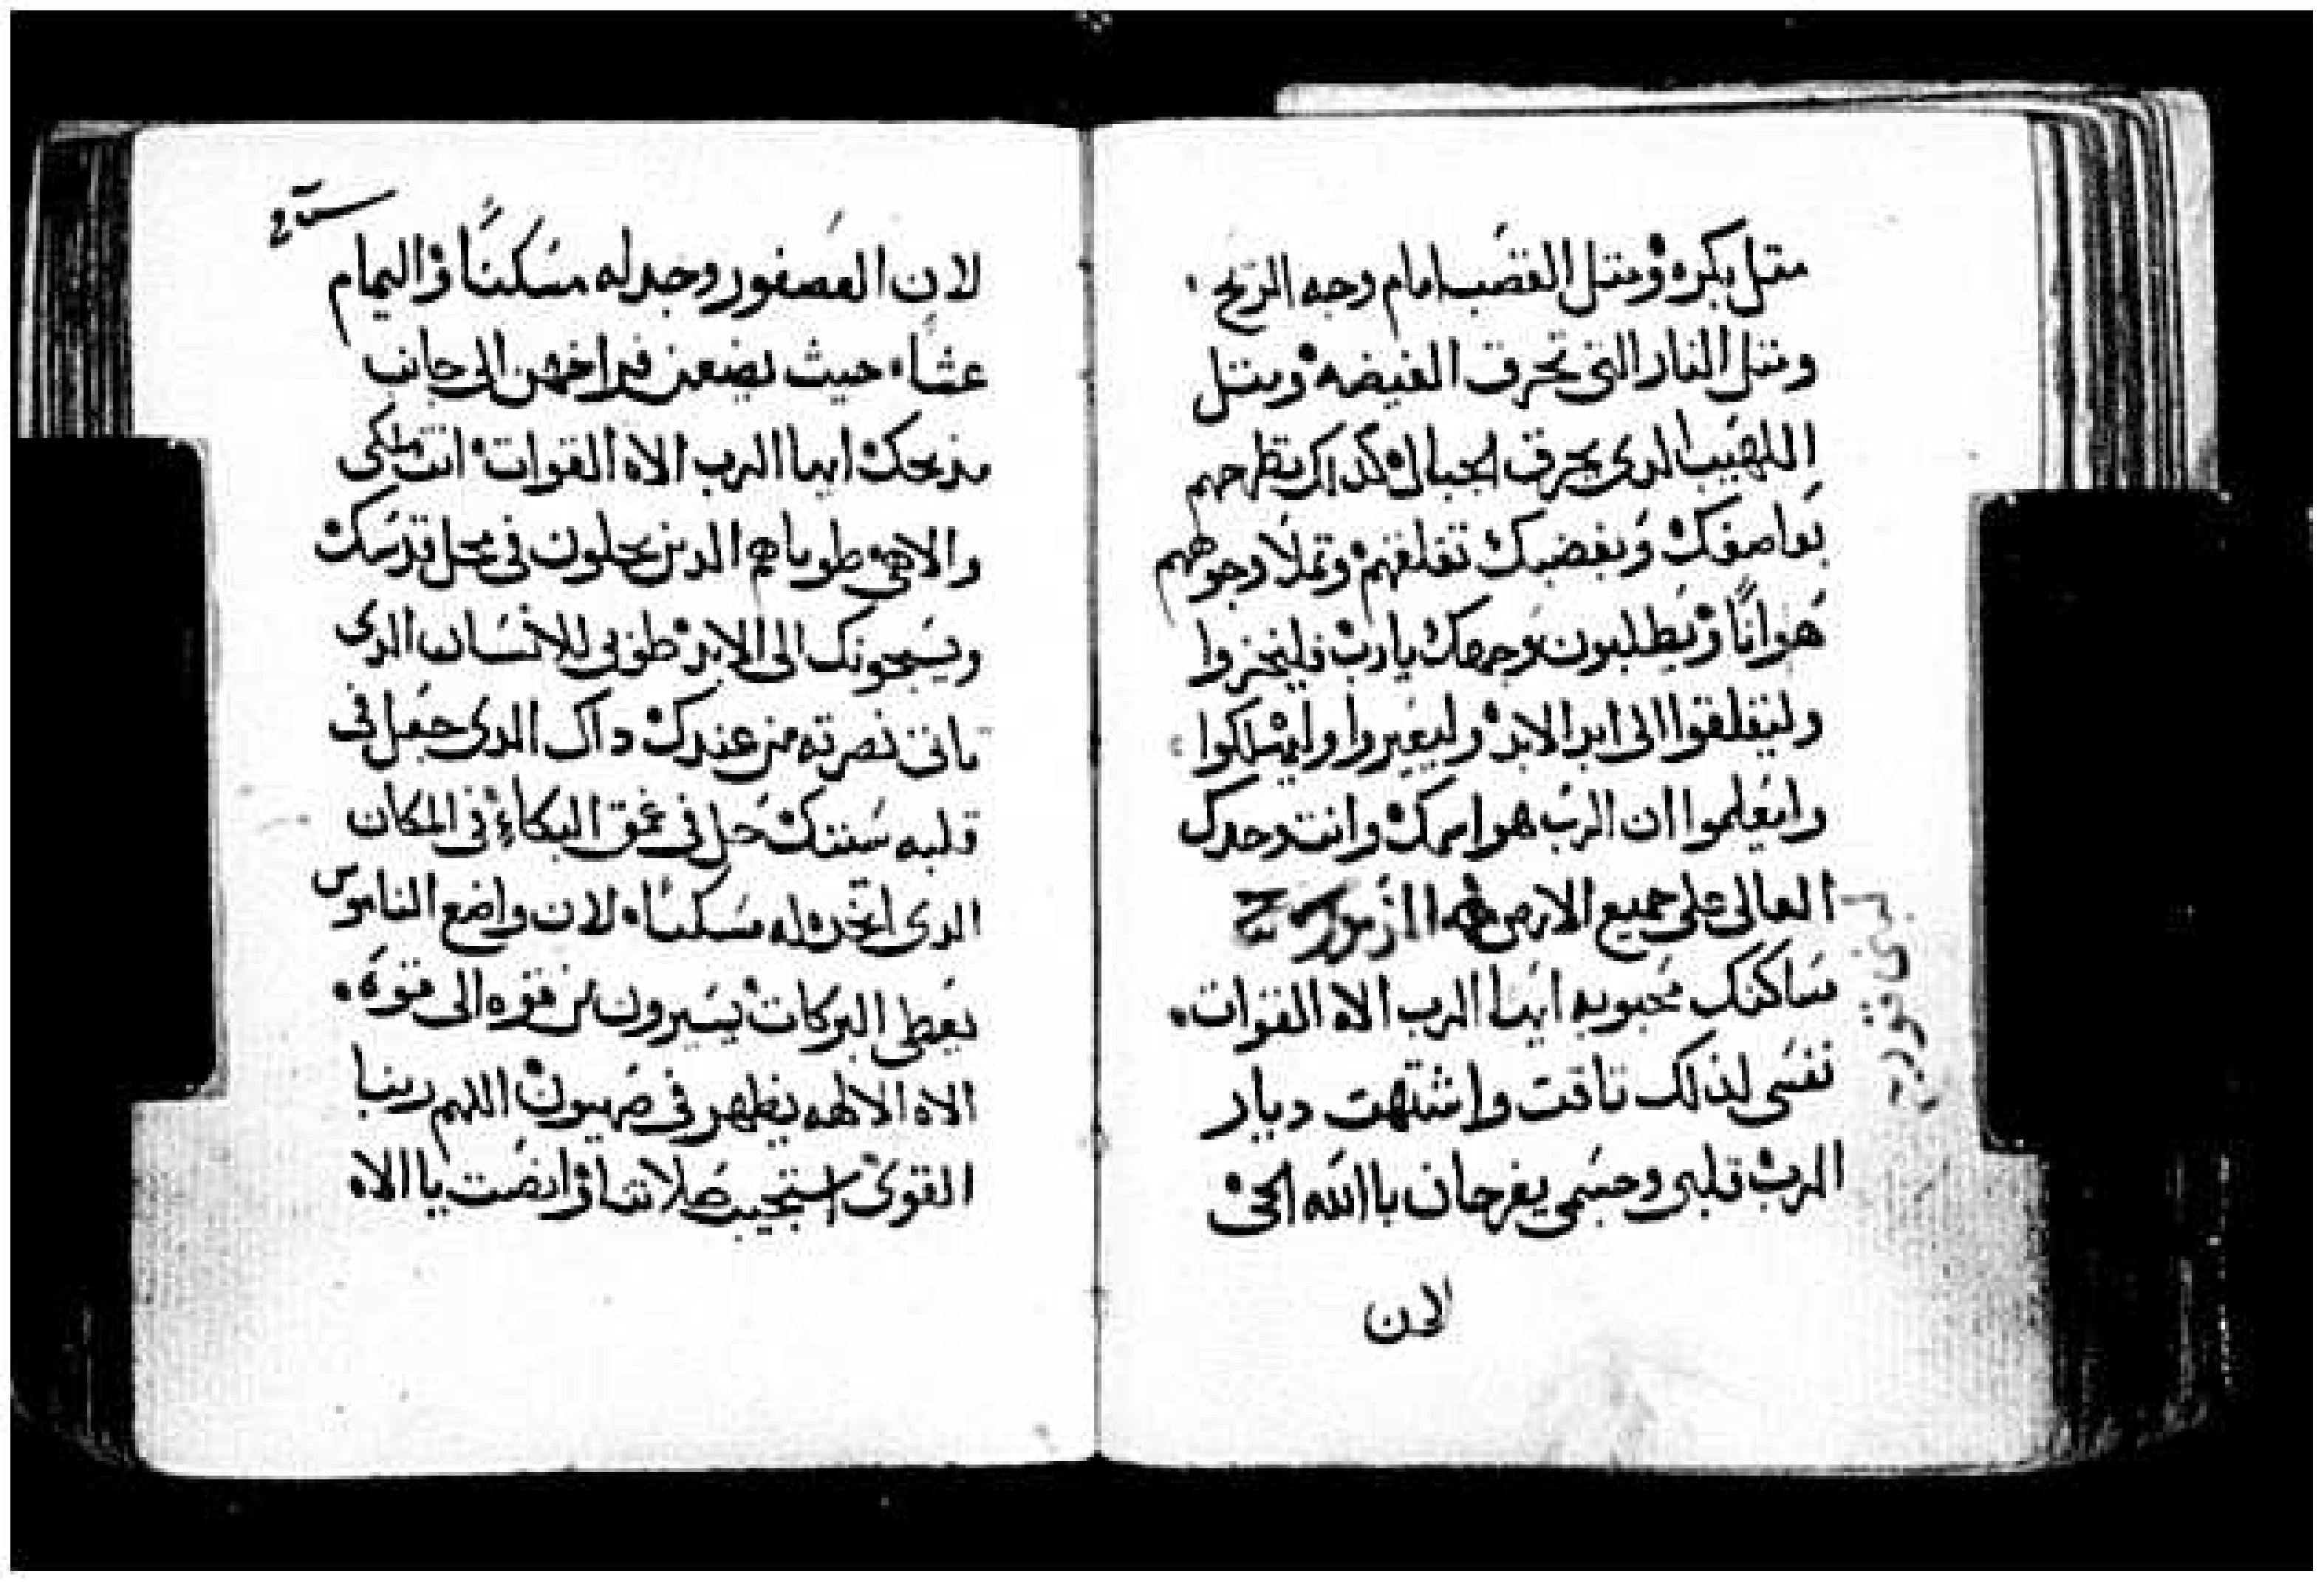 متل بكره ومتل القصب امام وجه الريح
ومتل النار التي تحرق الغيضه ومتل
اللهيب الدى يحرق الجبال كداك تطرحهم
بعواصفك وبغضبك تقلقهم وتملا وجوههم
هوانًا ويطلبون وجهك يارب فليخزوا
وليقلقوا الى ابد الابد وليعيروا وليهلكوا
وليعلموا ان الرب هو اسمك وانت وحدك
العالى على جميع الارض المزمور
مساكنك محبوبه ايها الرب الاه القوات
نفسى لذلك تاقت واشتهت ديار
الرب قلبى وجسمى يفرحان باالله الحى
لان
لان العصفور وجد له مسكنًا واليمام
عشًا حيث يضعن فراخهن الى جانب
مذبحك ايها الرب الاه القوات انت ملكى
والاهى طوباهم الدين يحلون فى محل قدسك
ويسبحونك الى الابد طوبى للانسان الدى
تاتى نصرته من عندك داك الدى جعل فى
قلبه سنتك حل فى عمق البكاء فى المكان
الدى اتخد له مسكنًا لان واضع الناموس
يعطى البركات يسيرون من قوه الى قوه
الاه الالهه يظهر فى صهيون اللهم ربنا
القوى استجيب صلاتنا وانصت يا الاه